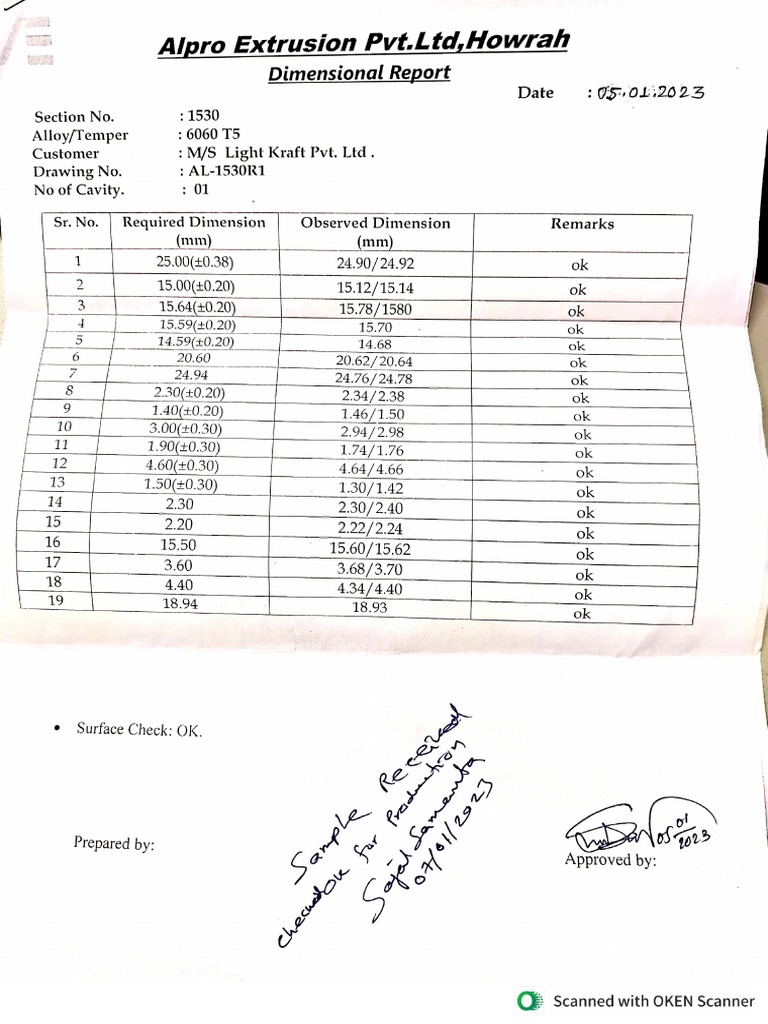 Alpro Extrusion Pvt.Ltd,Howrah
Dimensional Report
Date : 05.01.2023
Section No. : 1530
Alloy/Temper : 6060 T5
Customer : M/S Light Kraft Pvt. Ltd .
Drawing No. : AL-1530R1
No of Cavity. : 01
Sr. No. Required Dimension (mm) Observed Dimension (mm) Remarks
1 25.00(±0.38) 24.90/24.92 ok
2 15.00(±0.20) 15.12/15.14 ok
3 15.64(±0.20) 15.78/1580 ok
4 15.59(±0.20) 15.70 ok
5 14.59(±0.20) 14.68 ok
6 20.60 20.62/20.64 ok
7 24.94 24.76/24.78 ok
8 2.30(±0.20) 2.34/2.38 ok
9 1.40(±0.20) 1.46/1.50 ok
10 3.00(±0.30) 2.94/2.98 ok
11 1.90(±0.30) 1.74/1.76 ok
12 4.60(±0.30) 4.64/4.66 ok
13 1.50(±0.30) 1.30/1.42 ok
14 2.30 2.30/2.40 ok
15 2.20 2.22/2.24 ok
16 15.50 15.60/15.62 ok
17 3.60 3.68/3.70 ok
18 4.40 4.34/4.40 ok
19 18.94 18.93 ok
• Surface Check: OK.
Sample Received
Checked OK for Production
Sajal Samanta
07/01/2023
Prepared by:
05 01/2023
Approved by:
Scanned with OKEN Scanner